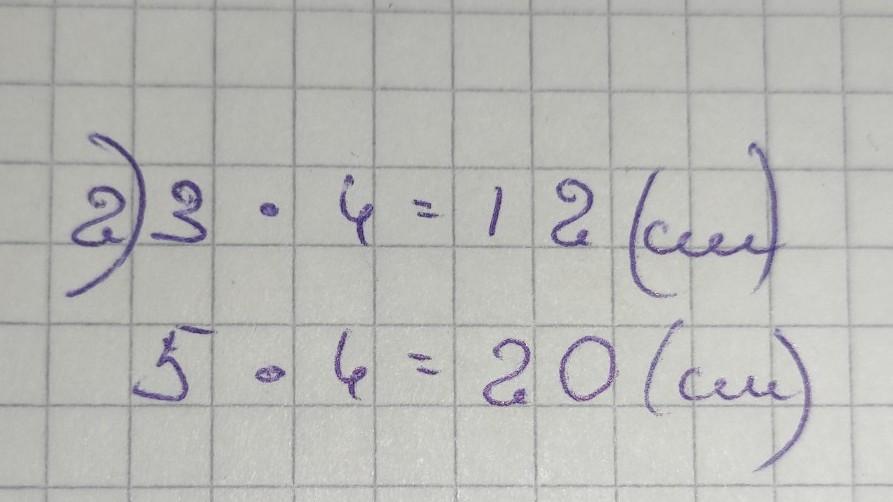 2) 3 · 4 = 12 (см)
5 · 4 = 20 (см)